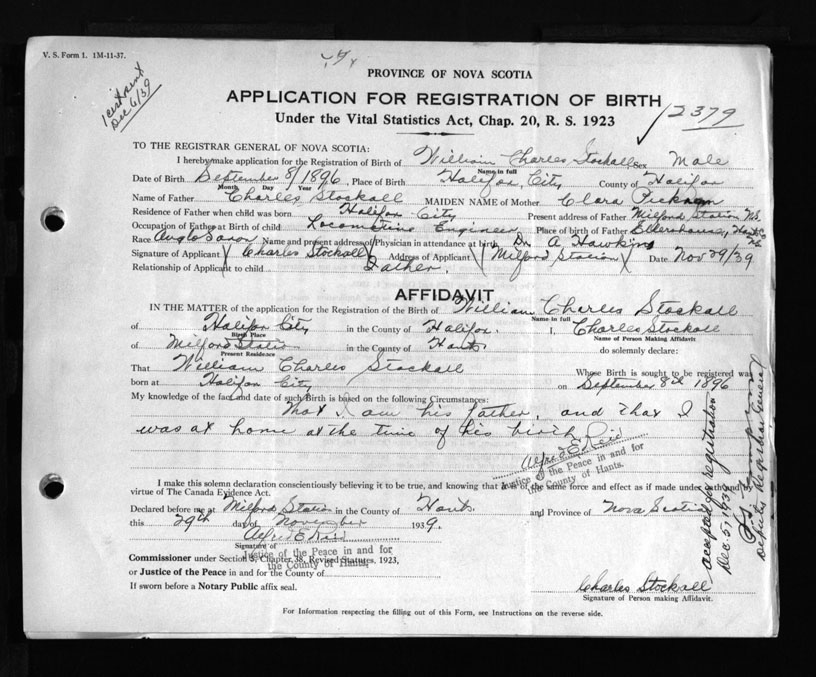 V. S. Form 1. 1M-11-37.
1 cert sent
Dec 6/39
PROVINCE OF NOVA SCOTIA
APPLICATION FOR REGISTRATION OF BIRTH
Under the Vital Statistics Act, Chap. 20, R. S. 1923
2379
TO THE REGISTRAR GENERAL OF NOVA SCOTIA:
I hereby make application for the Registration of Birth of William Charles Stockall Sex Male
Name in full
Date of Birth September 8/1896, Place of Birth Halifax City County of Halifax
Month Day Year
Name of Father Charles Stockall MAIDEN NAME of Mother Clara
Residence of Father when child was born Halifax City Present address of Father Milford Station N.S.
Occupation of Father at Birth of child Locomotive Engineer Place of birth of Father Eldershouse, Hants Co N.S.
Race Anglo Saxon Name and present address of Physician in attendance at birth Dr A Hawkins
Signature of Applicant Charles Stockall Address of Applicant Milford Station Date Nov 29/39
Relationship of Applicant to child Father.
AFFIDAVIT
IN THE MATTER of the application for the Registration of the Birth of William Charles Stockall
Name in full
of Halifax City in the County of Halifax. I, Charles Stockall
Birth Place Name of Person Making Affidavit
of Milford Station in the County of Hants. do solemnly declare:
Present Residence
That William Charles Stockall Whose Birth is sought to be registered was
born at Halifax City on September 8th 1896
My knowledge of the fact and date of such Birth is based on the following Circumstances:
That I am his father, and that I
was at home at the time of his birth
Alfred E Reid
Justice of the Peace in and for
the County of Hants.
I make this solemn declaration conscientiously believing it to be true, and knowing that it is of the same force and effect as if made under oath and by
virtue of The Canada Evidence Act.
Declared before me at Milford Station in the County of Hants and Province of Nova Scotia
this 29th day of November 1939.
Alfred E Reid
Signature of
Justice of the Peace in and for
the County of Hants.
Commissioner under Section 5, Chapter 38, Revised Statutes, 1923,
or Justice of the Peace in and for the County of
If sworn before a Notary Public affix seal.
Charles Stockall
Signature of Person making Affidavit.
For Information respecting the filling out of this Form, see Instructions on the reverse side.
accepted for registration
Dec 5, 1939
Deputy Registrar General